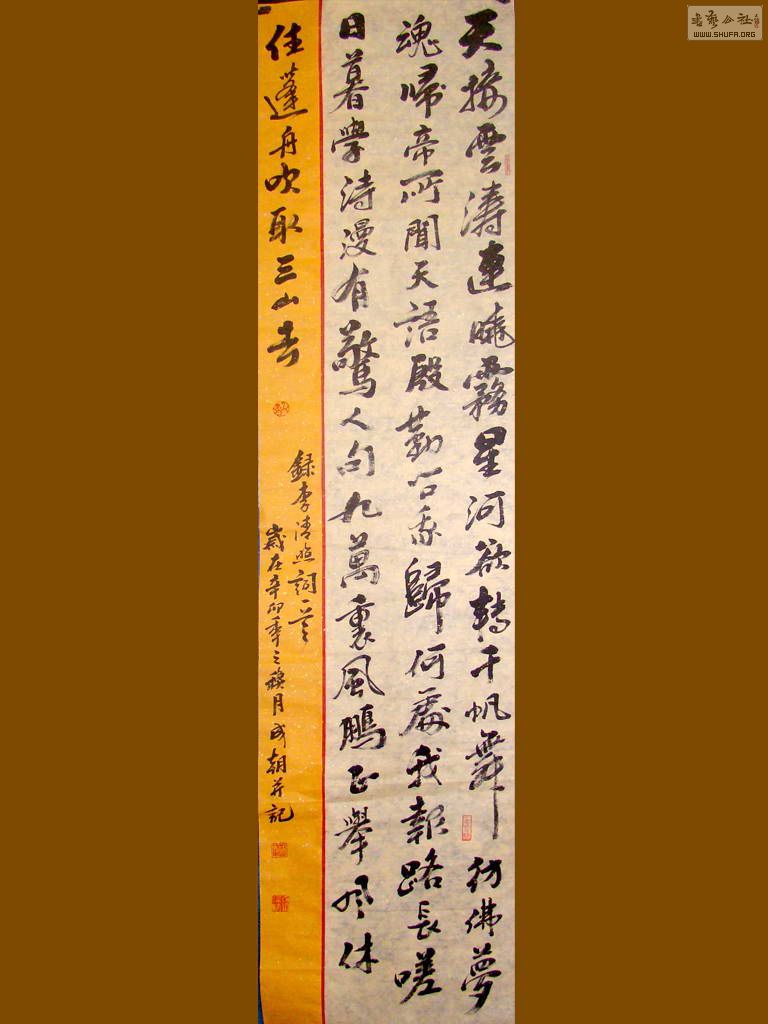 天接雲濤連曉霧星河欲轉千帆舞彷佛夢
魂歸帝所聞天語殷勤問我歸何處我報路長嗟
日暮學詩漫有驚人句九萬裏風鵬正舉風休
住蓬舟吹取三山去
録李清照詞一首
歲在辛卯年之月成朝并記
書藝公社
WWW.SHUFA.ORG